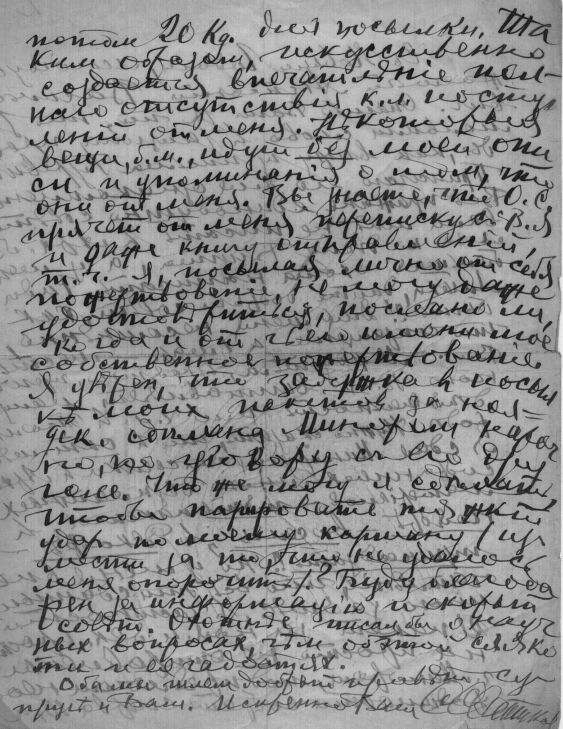 потом 20 Кр. для посылки. Та
ким образом, искусственно
создается впечатление пол-
наго отсутствiя к.л. посту
плений от меня. Некоторыя
вещи, б.м., идут без моей опи
си и упоминания о том, что
они от меня. Вы знаете, что О. С
прячет от меня переписку с В.Я
и даже книгу отправлений,
т.ч. я, посылая лично от себя
пожертвованiе, не могу даже
удостовериться, послано ли,
когда и от чьего имени мое
собственное пожертвованiе.
Я уверен, что задержка в посыл
ке моих пакетов за
сделана нароч
но, по уговору с его
Что же могу я сделать,
чтобы парировать тяжкiй
удар по моему карману (из
мести за то, что не удалось
меня опорочить)? Буду благода
рен за информацiю и скорый
совет. Охотнее писал бы о науч
ных вопросах, чем об этой
и его
Оба мы шлем добрый привет су
пруге и Вам. Искренно Ваш